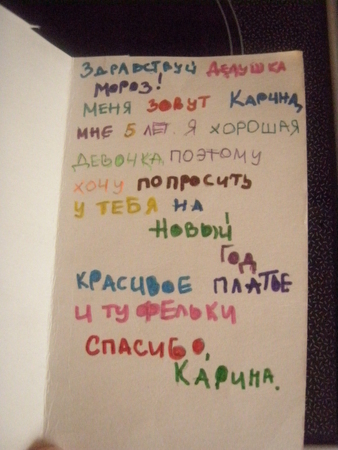 ЗДРАВСТВУЙ ДЕДУШКА
МОРОЗ!
МЕНЯ ЗОВУТ КАРИНА,
МНЕ 5 ЛЕТ. Я ХОРОШАЯ
ДЕВОЧКА ПОЭТОМУ
ХОЧУ ПОПРОСИТЬ
У ТЕБЯ НА
НОВЫЙ
ГОД
КРАСИВОЕ ПЛАТЬЕ
И ТУФЕЛЬКИ
СПАСИБО,
КАРИНА.